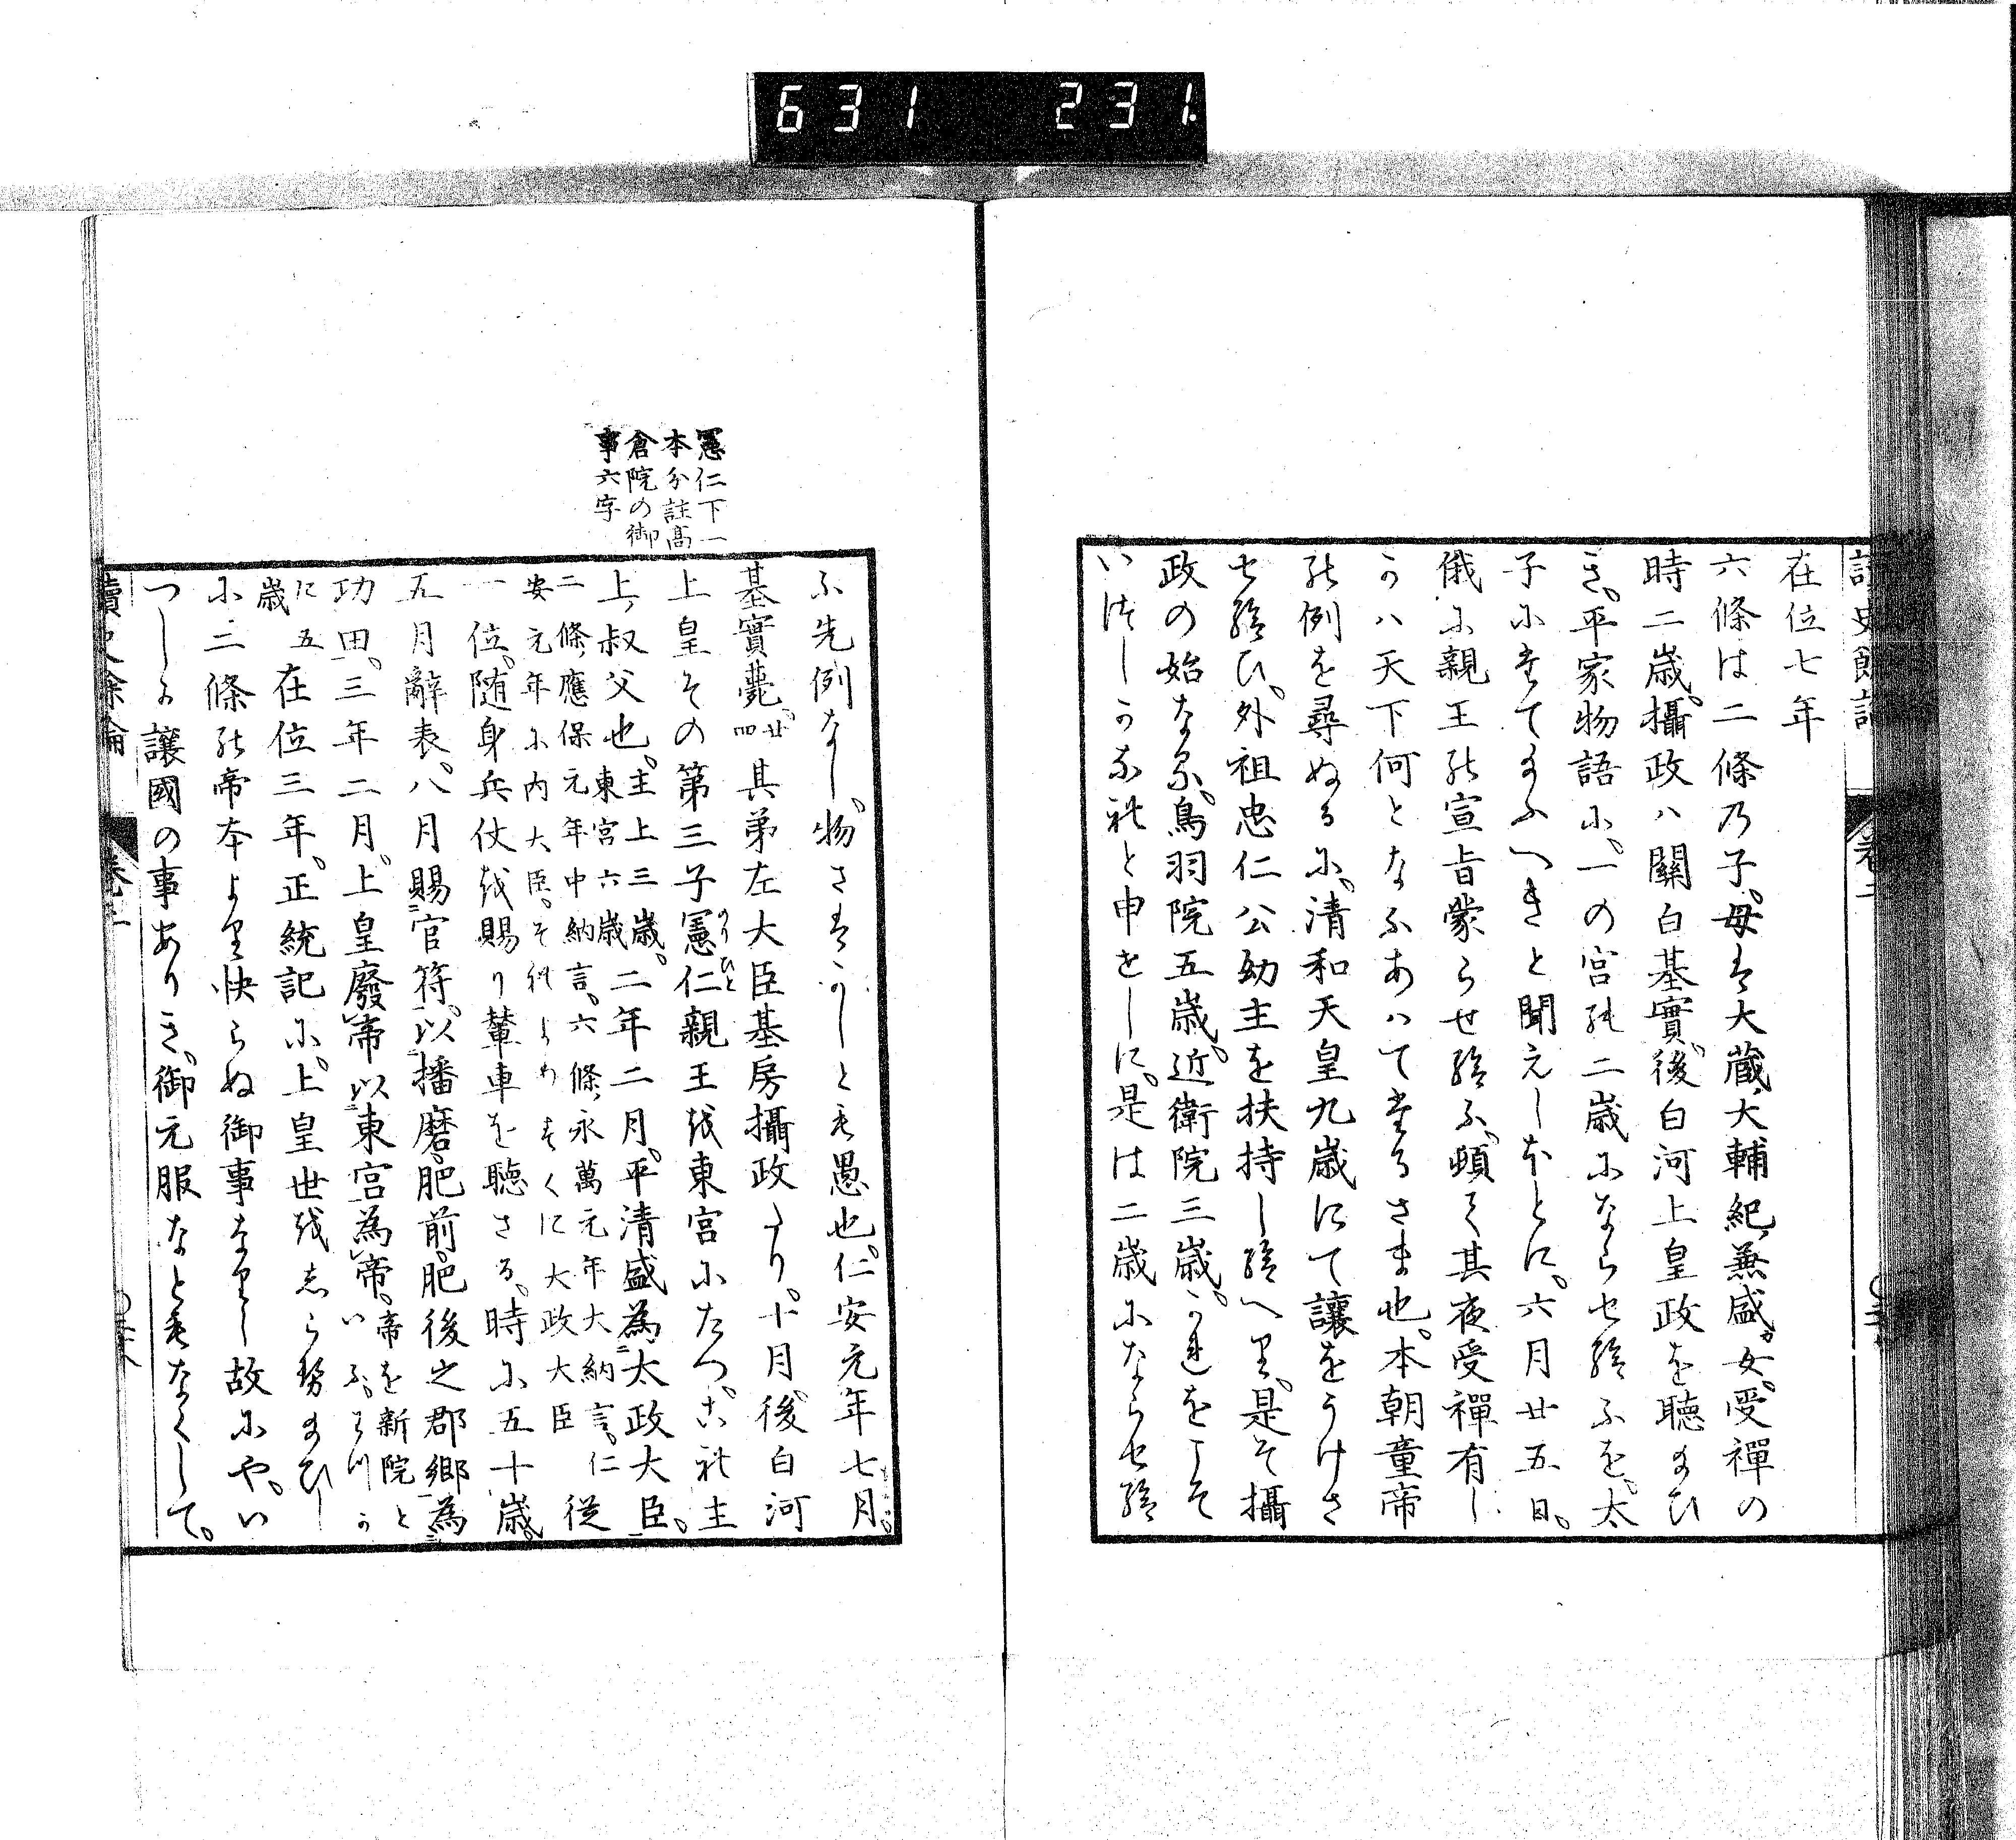 631 231
在位七年
六條は二條乃子。母は大蔵大輔紀兼盛女。受禪の
時二歳。攝政ハ關白基實。後白河上皇政を聴給ひ
き。平家物語に。一の宮能二歳にならせ給ふを。太
子にたてまふへきと聞えしほとに。六月廿五日。
俄に親王能宣旨蒙らせ給ふ。頓て其夜受禪有し
かハ天下何となふあハてたるさま也。本朝童帝
能例を尋ぬるに。清和天皇九歳にて讓をうけさ
せ給ひ。外祖忠仁公幼主を扶持し給へり。是そ攝
政の始なる。鳥羽院五歳。近衛院三歳。かれをこそ
いつしかなれと申せしに。是は二歳にならせ給
ふ先例なし。物さはかしとも愚也。仁安元年七月。
基實薨。廿四其弟左大臣基房攝政たり。十月。後白河
上皇その第三子憲仁のりひと親王を東宮にたつ。これ主
上ノ叔父也。主上三歳。東宮六歳二年二月。平清盛為太政大臣。
二條ノ應保元年中納言。六條ノ永萬元年大納言。仁
安元年に内大臣。それよりすくに大政大臣従
一位。随身兵仗を賜り輦車を聴さる。時に五十歳。
五月辭表。八月賜官符。以播磨。肥前。肥後之郡郷為
功田。三年二月。上皇廢帝以東宮為帝。帝を新院といふ。わつか
に五歳在位三年。正統記に。上皇世をしらせ給ひし
に二條能帝本より快らぬ御事なりし故にや。い
つしか讓國の事ありき。御元服なともなくして。
憲仁下一
本分註高
倉院の御
事六字
讀史餘論